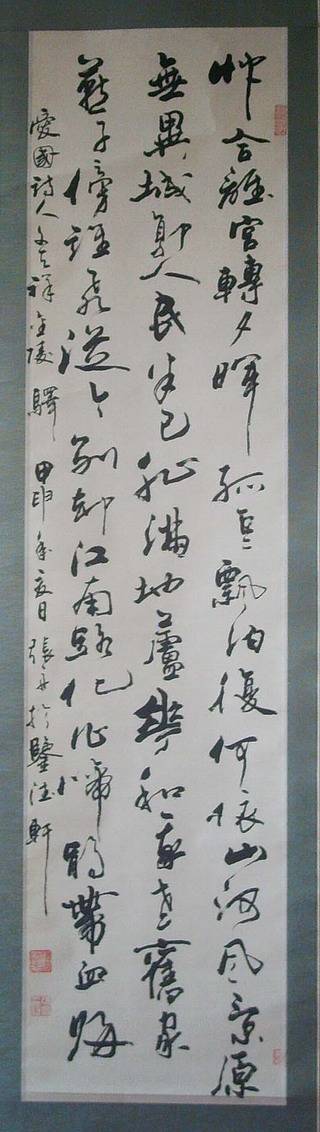 艸合離宮轉夕暉孤雲飄泊復何依山河風景原
無異城郭人民半已非滿地蘆花和我老舊家
燕子傍誰飛從今別卻江南路化作啼鵑帶血歸
愛國詩人文天祥金陵驛 甲申年夏日 張